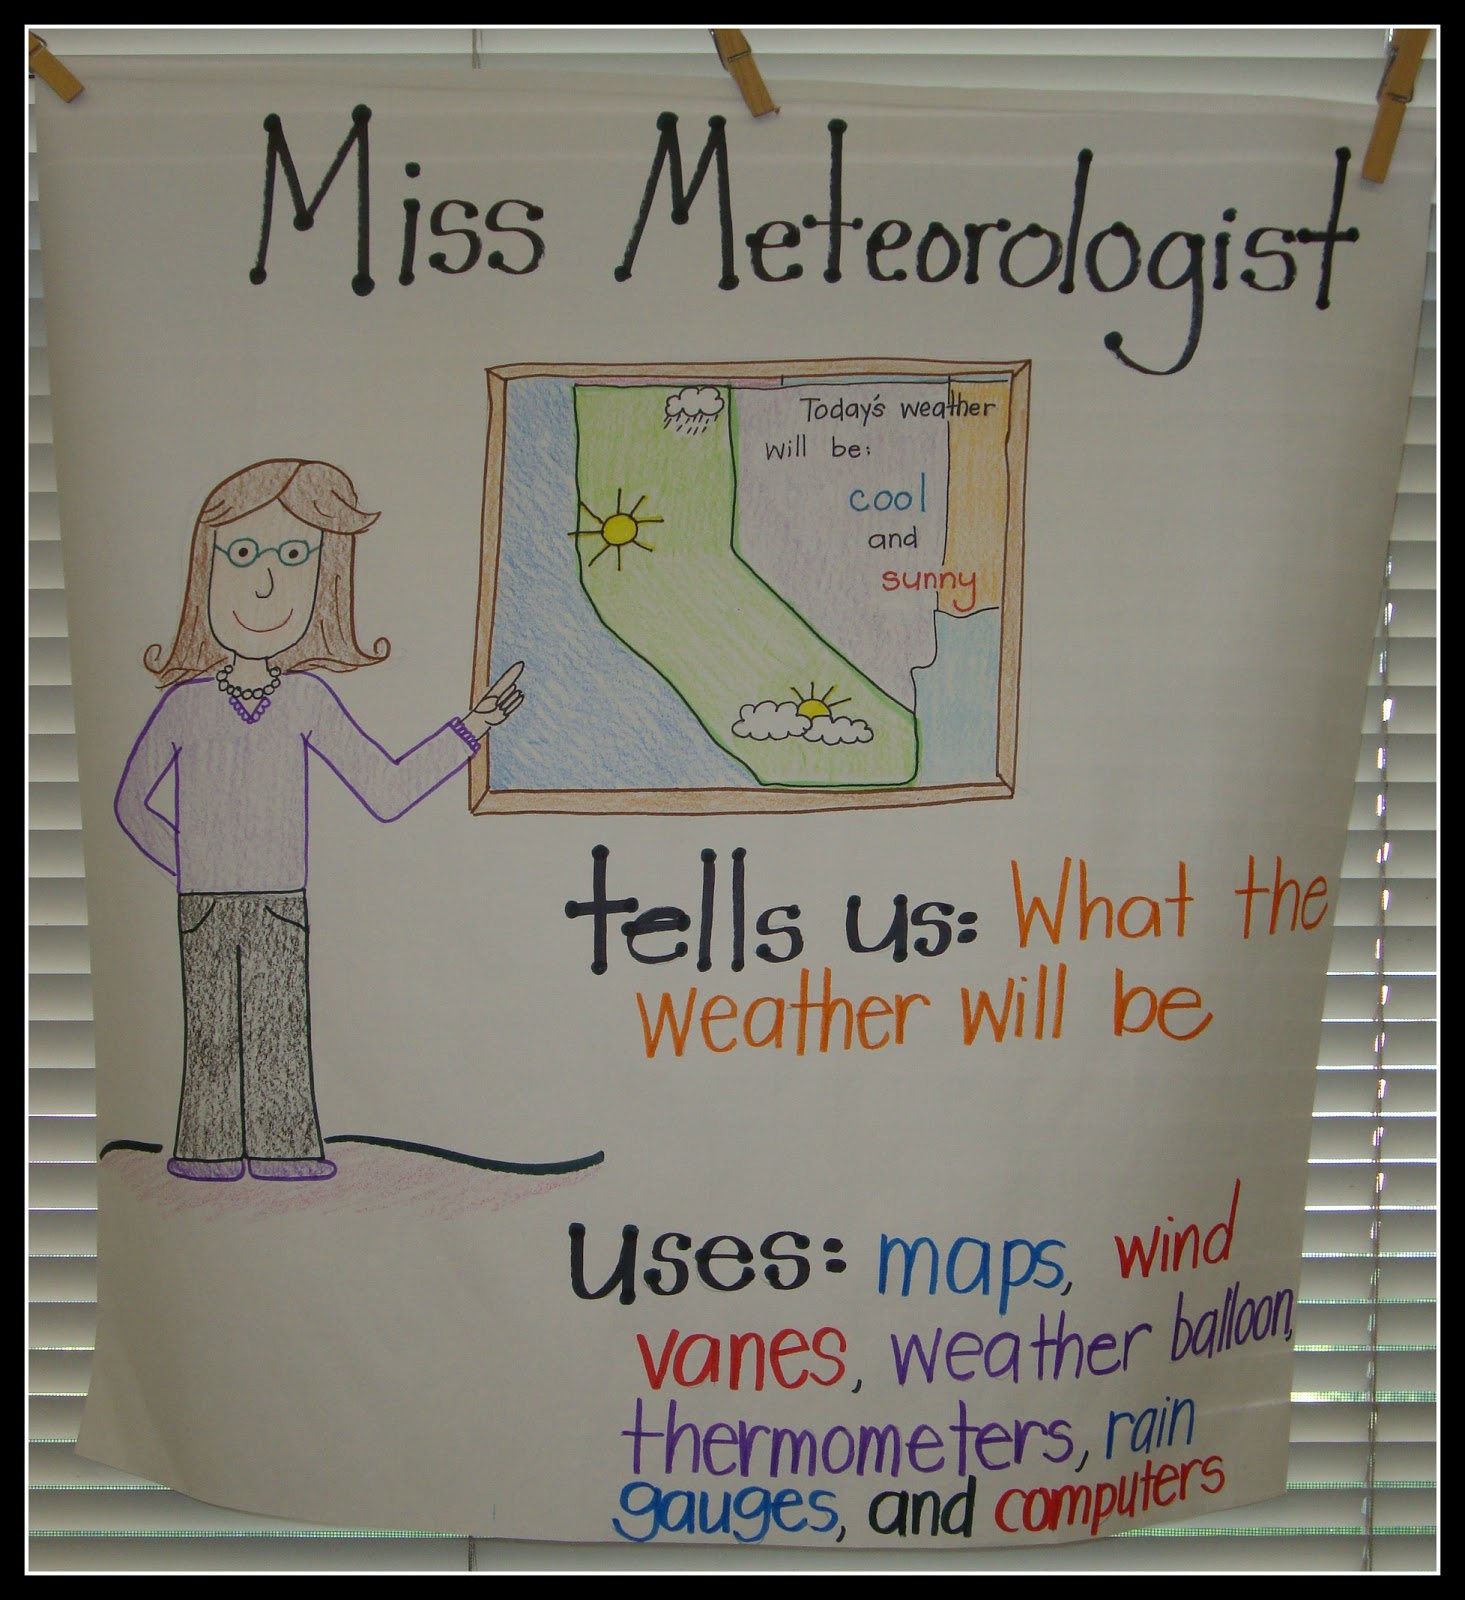 Miss Meteorologist
Today's weather
will be:
cool
and
sunny
tells us: What the
weather will be
uses: maps, wind
vanes, weather balloon,
thermometers, rain
gauges, and computers